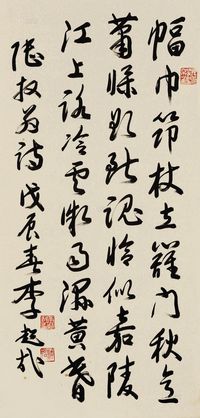 幅巾筇杖立籬門秋意
蕭條欲斷魂恰似嘉陵
江上路冷雲微雨濕黃昏
陸放翁詩戊辰春李超哉